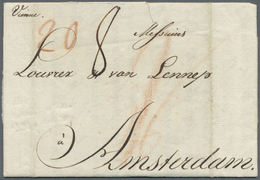 Vienne.
20 8 Messieurs
Louvrex & van Lennep
à
Amsterdam.